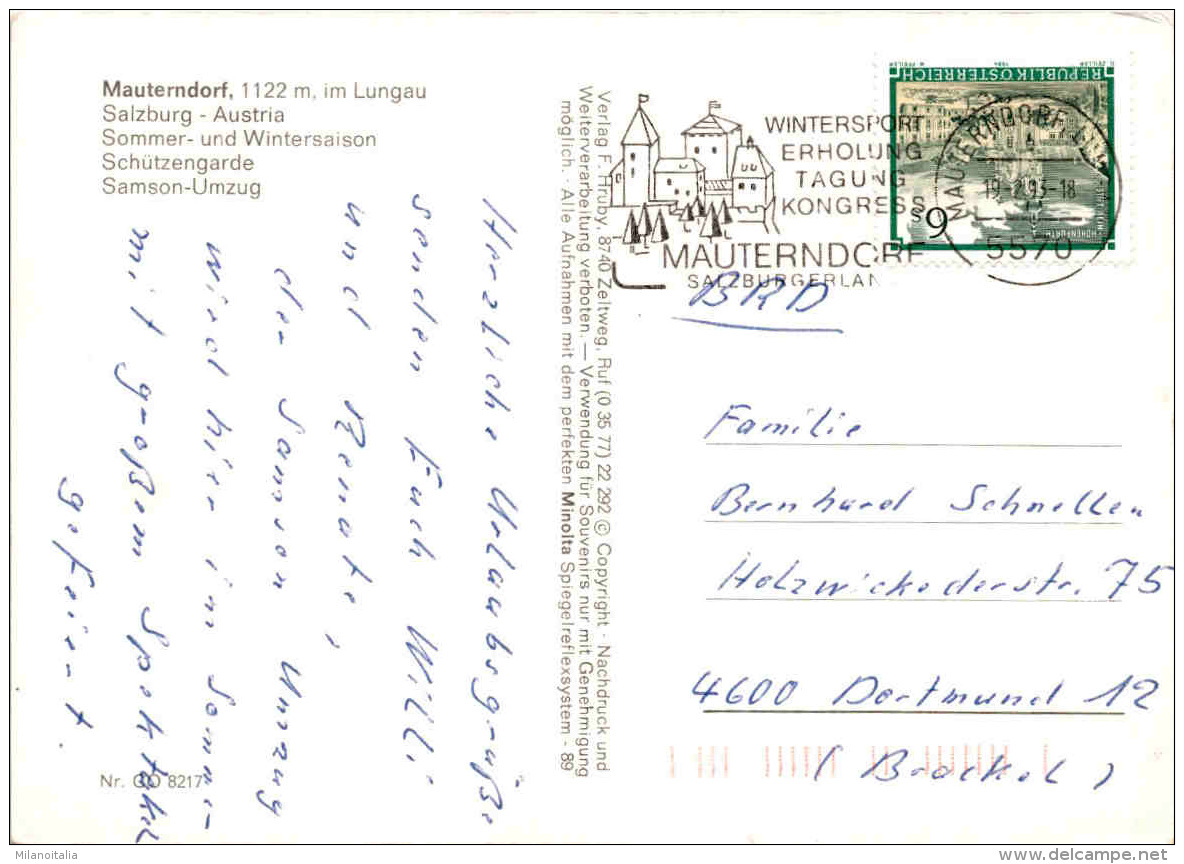 Mauterndorf, 1122 m, im Lungau
Salzburg - Austria
Sommer- und Wintersaison
Schützengarde
Samson-Umzug
Herzliche Urlaubsgrüße
senden Euch Willi
und Renate,
der Samson Umzug
wird hier im Sommer
mit großem Spektakel
gefeiert.
Nr. GO 8217
Verlag F. Hruby, 8740 Zeltweg, Ruf (0 35 77) 22 292 © Copyright · Nachdruck und
Weiterverarbeitung verboten. — Verwendung für Souvenirs nur mit Genehmigung
möglich. · Alle Aufnahmen mit dem perfekten Minolta Spiegelreflexsystem - 89
WINTERSPORT
ERHOLUNG
TAGUNG
KONGRESS
MAUTERNDORF
SALZBURGERLAN
REPUBLIK ÖSTERREICH
1984
HOHENFURTH
S 6
MAUTERNDORF
5570
BRD
Familie
Bernhard Schnellen
Holzwickederstr. 75
4600 Dortmund 12
(Brackel)
Milanoitalia
delcampe.net